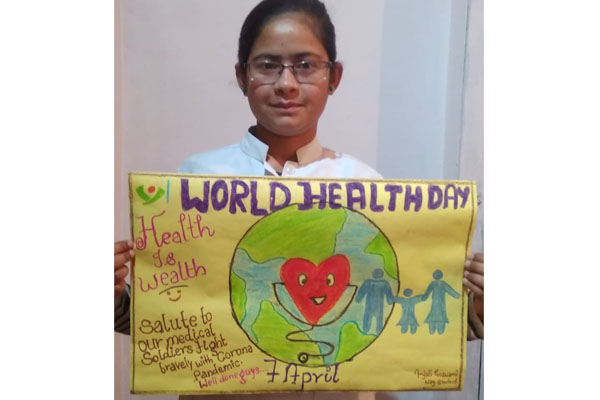 WORLD HEALTH DAY
Health
Is
wealth
Salute to
our medical
Soldiers fight
bravely with "Corona
Pandemic.
Well done guys...
7 April